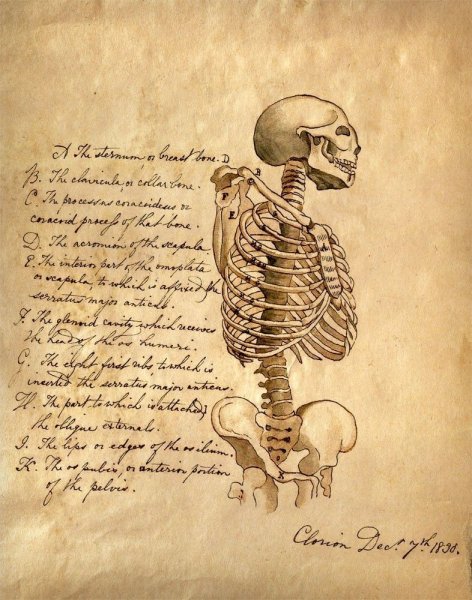 A The sternum or breast bone.
B. The clavicula or collar bone.
C. The processus coracoideus or
coracoid process of that bone.
D. The acromion of the scapula
E. The interior part of the omoplata
or scapula, to which is affixed the
serratus major anticus.
F. The glenoid cavity which receives
the head of the os humeri.
G. The eight first ribs to which is
inserted the serratus major anticus.
H. The part to which is attached
the oblique externals.
I. The lips or edges of the os ilium.
K. The os pubis, or anterior portion
of the pelvis.
D
B
F
E
Dec. 7th